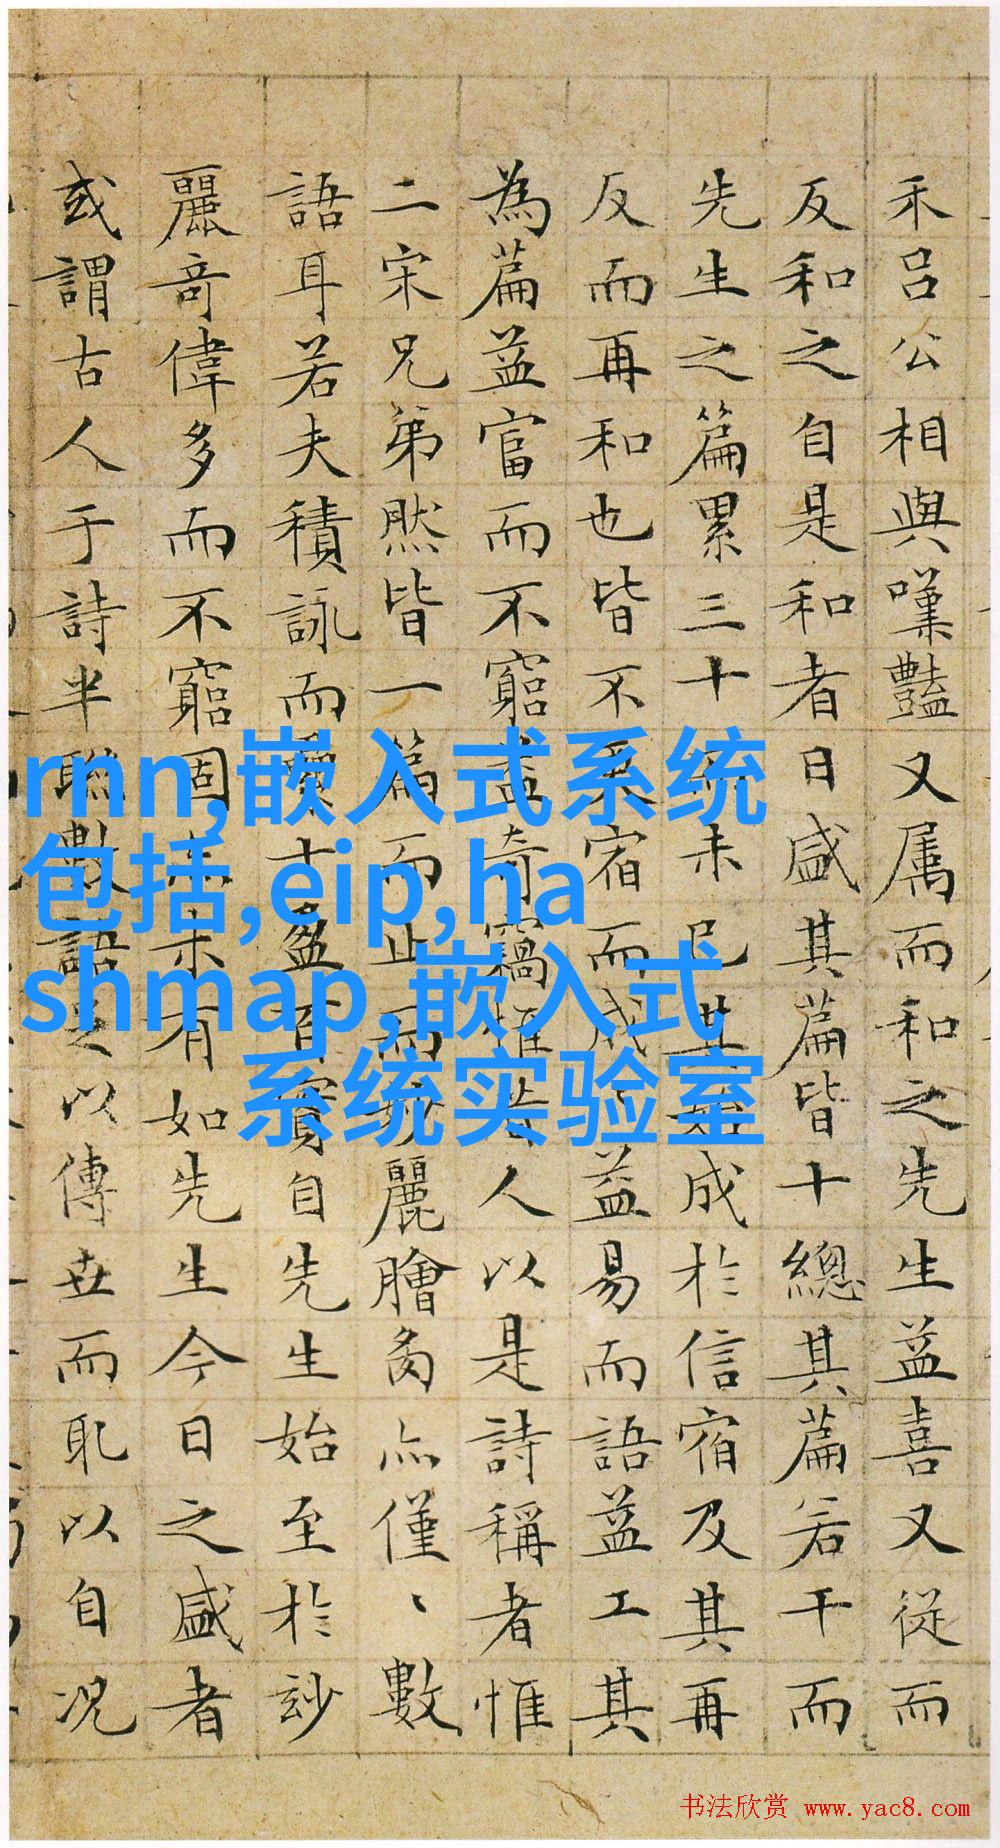 禾吕公相與嘆豔又属而和之先生益喜又從而
反和之自是和者日盛其篇皆十總其篇若干而
先生之篇累三十未已其始成於信宿及其再
反而再和也皆不宿而成、益易而語益工其
為篇益富而不窮益奇竊惟昔人以是詩稱者惟
二宋兄弟然皆一篇而止而妙麗膾炙亦僅、數
語耳若夫積詠而十盈百實自先生始至於玅
麗奇偉多而不窮固未有如先生今日之盛者
或謂古人于詩半聯數語足以傳世而耻以自况
rnn,嵌入式系统
包括,eip,ha
shmap,嵌入式
系统实验室
书法欣赏 www.yac8.com